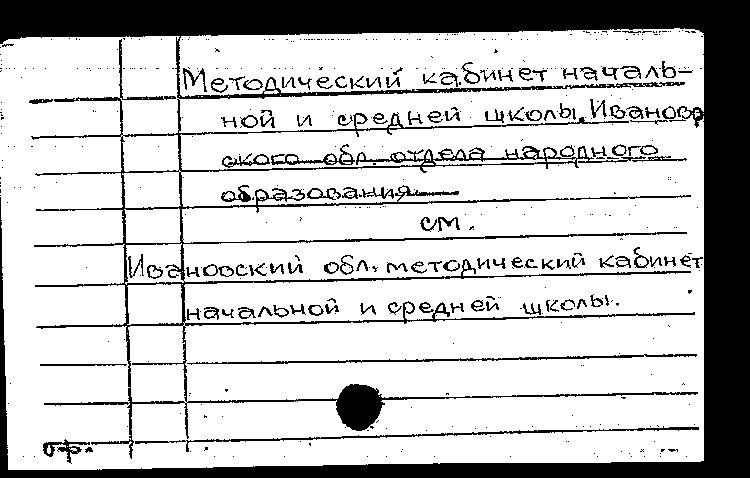 Методический кабинет началь-
ной и средней школы, Ивановс
ского обл. отдела народного
образования
см.
Ивановский обл. методический кабинет
начальной и средней школы.